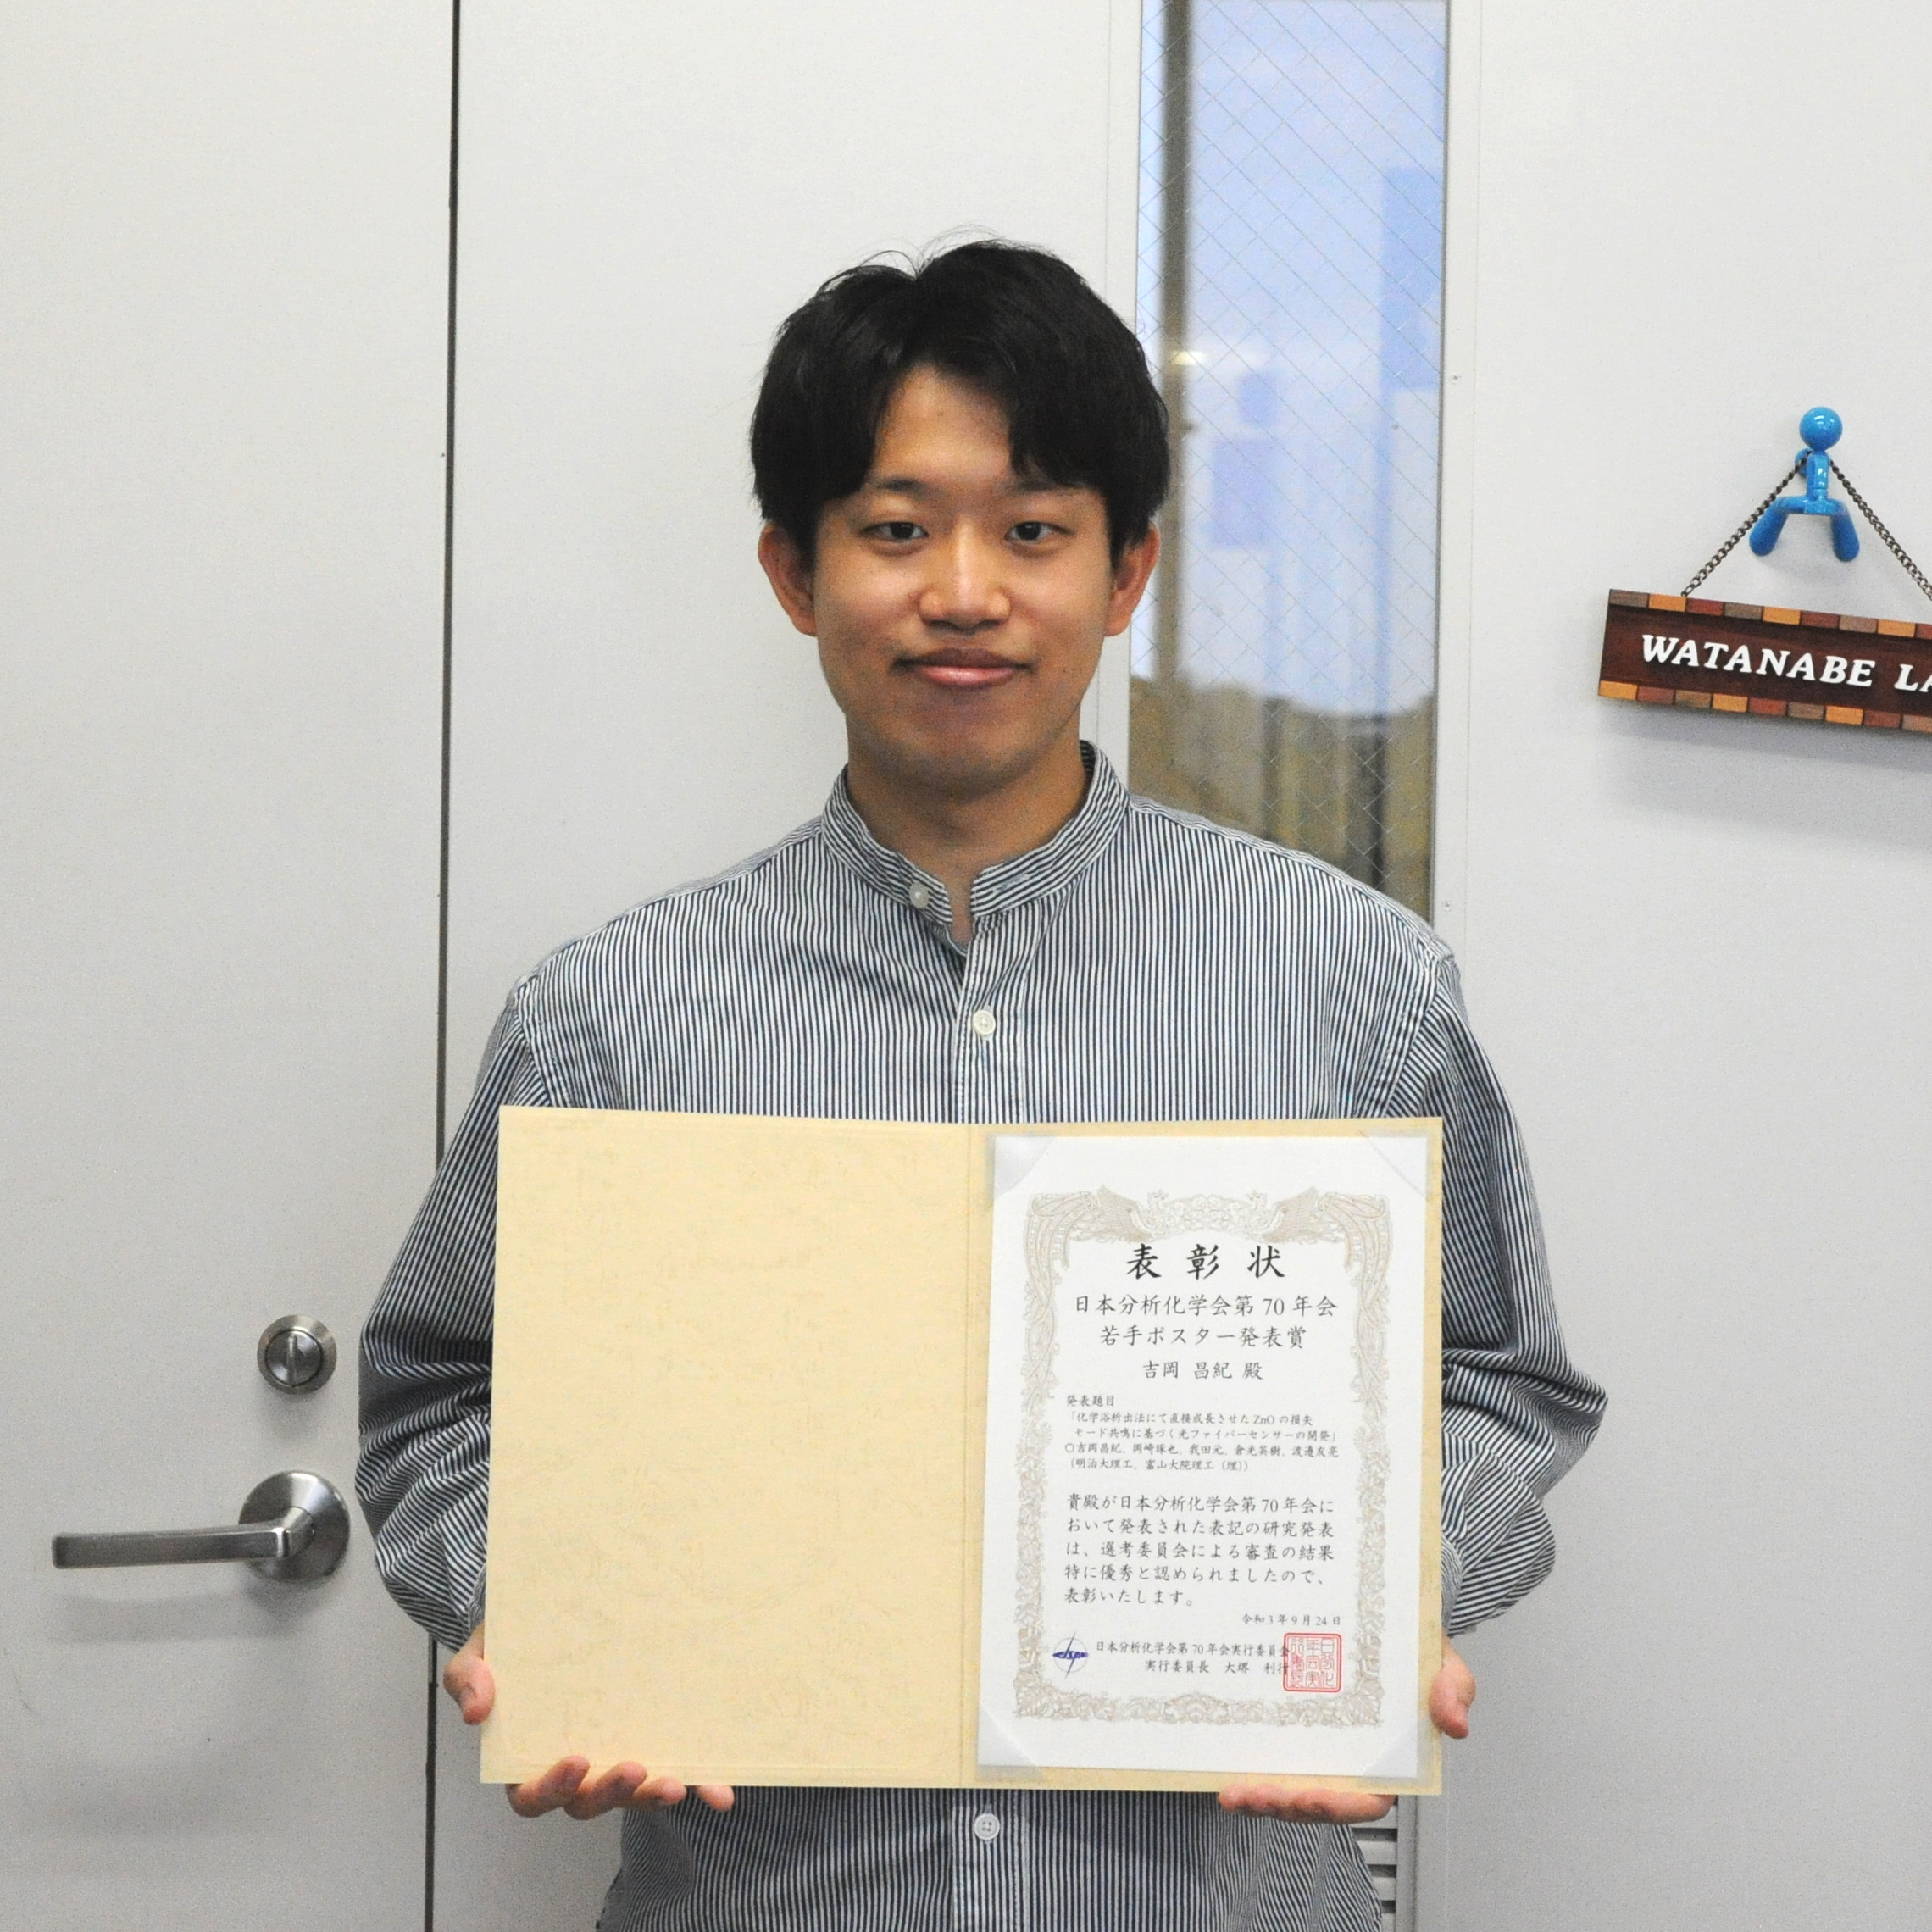 WATANABE LA
表彰状
日本分析化学会第70年会
若手ポスター発表賞
吉岡 昌紀 殿
発表題目
「化学浴析出法にて直接成長させたZnOの損失
モード共鳴に基づく光ファイバーセンサーの開発」
〇吉岡昌紀、岡崎琢也、我田元、倉光英樹、渡邊友亮
(明治大理工、富山大院理工(理))
貴殿が日本分析化学会第70年会に
おいて発表された表記の研究発表
は、選考委員会による審査の結果
特に優秀と認められましたので、
表彰いたします。
令和3年9月24日
日本分析化学会第70年会実行委員会
実行委員長 大堺 利行